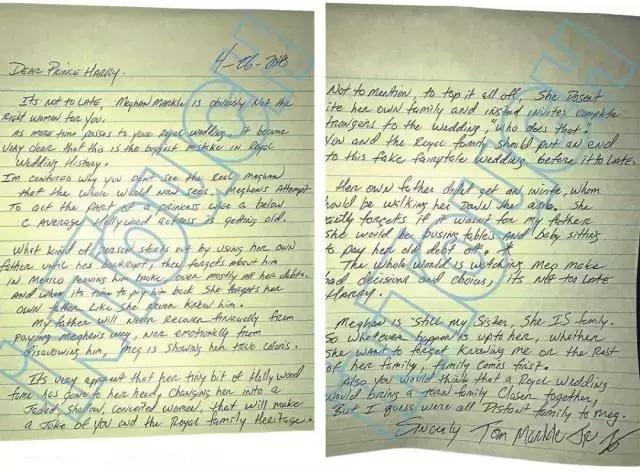 4-26-2018
DEAR PRINCE HARRY.
IT'S NOT TO LATE, MEGHAN MARKLE IS OBVIOUSLY NOT THE
RIGHT WOMEN FOR YOU.
AS MORE TIME PASSES TO YOUR ROYAL WEDDING, IT BECAME
VERY CLEAR THAT THIS IS THE BIGGEST MISTAKE IN ROYAL
WEDDING HISTORY.
I'M CONFUSED WHY YOU DON'T SEE THE REAL MEGHAN
THAT THE WHOLE WORLD NOW SEES. MEGHAN'S ATTEMPT
TO ACT THE PART OF A PRINCESS LIKE A BELOW
C AVERAGE HOLLYWOOD ACTRESS IS GETTING OLD.
WHAT KIND OF PERSON STARTS OUT BY USING HER OWN
FATHER UNTIL HE'S BANKRUPT, THEN FORGETS ABOUT HIM
IN MEXICO LEAVING HIM BROKE OVER MOSTLY ALL HER DEBTS.
AND WHEN ITS TIME TO PAY HIM BACK SHE FORGETS HER
OWN FATHER LIKE SHE NEVER KNEW HIM.
MY FATHER WILL NEVER RECOVER FINANCIALLY FROM
PAYING MEGHAN'S WAY, NOR EMOTIONALLY FROM
DISAVOWING HIM, MEG IS SHOWING HER TRUE COLORS.
IT'S VERY APPARENT THAT HER TINY BIT OF HOLLYWOOD
FAME HAS GONE TO HER HEAD, CHANGING HER INTO A
JADED, SHALLOW, CONCEITED WOMEN, THAT WILL MAKE
A JOKE OF YOU AND THE ROYAL FAMILY HERITAGE.
NOT TO MENTION, TO TOP IT ALL OFF, SHE DOSENT
ITE HER OWN FAMILY AND INSTEAD INVITES COMPLETE
TRANGERS TO THE WEDDING, WHO DOES THAT.
YOU AND THE ROYAL FAMILY SHOULD PUT AN END
TO THIS FAKE FAIRYTALE WEDDING BEFORE IT'S TO LATE.
HER OWN FATHER DIDN'T GET AN INVITE, WHOM
HOULD BE WALKING HER DOWN THE ASLE. SHE
FORGETS IF IT WASN'T FOR MY FATHER
SHE WOULD BE BUSING TABLES AND BABY SITTING
TO PAY HER OLD DEBT OFF.
THE WHOLE WORLD IS WATCHING MEG MAKE
BAD DECISIONS AND CHOICES, IT'S NOT TO LATE
HARRY.
MEGHAN IS STILL MY SISTER, SHE IS FAMILY.
SO WHATEVER HAPPENS IS UP TO HER, WHETHER
SHE WANT TO FORGET KNOWING ME OR THE REST
OF HER FAMILY, FAMILY COMES FIRST.
ALSO YOU WOULD THINK THAT A ROYAL WEDDING
WOULD BRING A TORN FAMILY CLOSER TOGETHER,
BUT I GUESS WERE ALL DISTANT FAMILY TO MEG.
SINCERLY TOM MARKLE JR